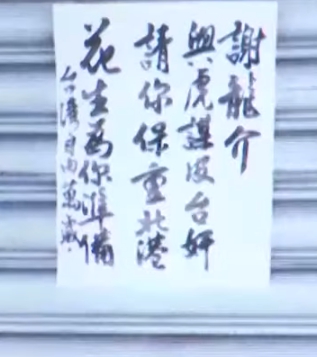 謝龍介
與虎謀皮台奸
請你保重北港
花生為你準備
台灣目由萬歲.